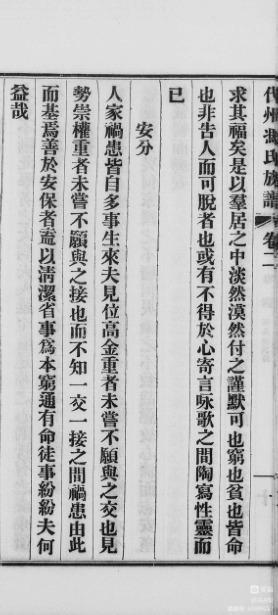 代州馮氏族譜 卷二
求其福矣是以羣居之中淡然漠然付之謹默可也窮也貧也皆命
也非告人而可脫者也或有不得於心寄言咏歌之間陶寫性靈而
已
安分
人家禍患皆自多事生來夫見位高金重者未嘗不願與之交也見
勢崇權重者未嘗不願與之接也而不知一交一接之間禍患由此
而基焉善於安保者盍以清潔省事為本窮通有命徒事紛紛夫何
益哉